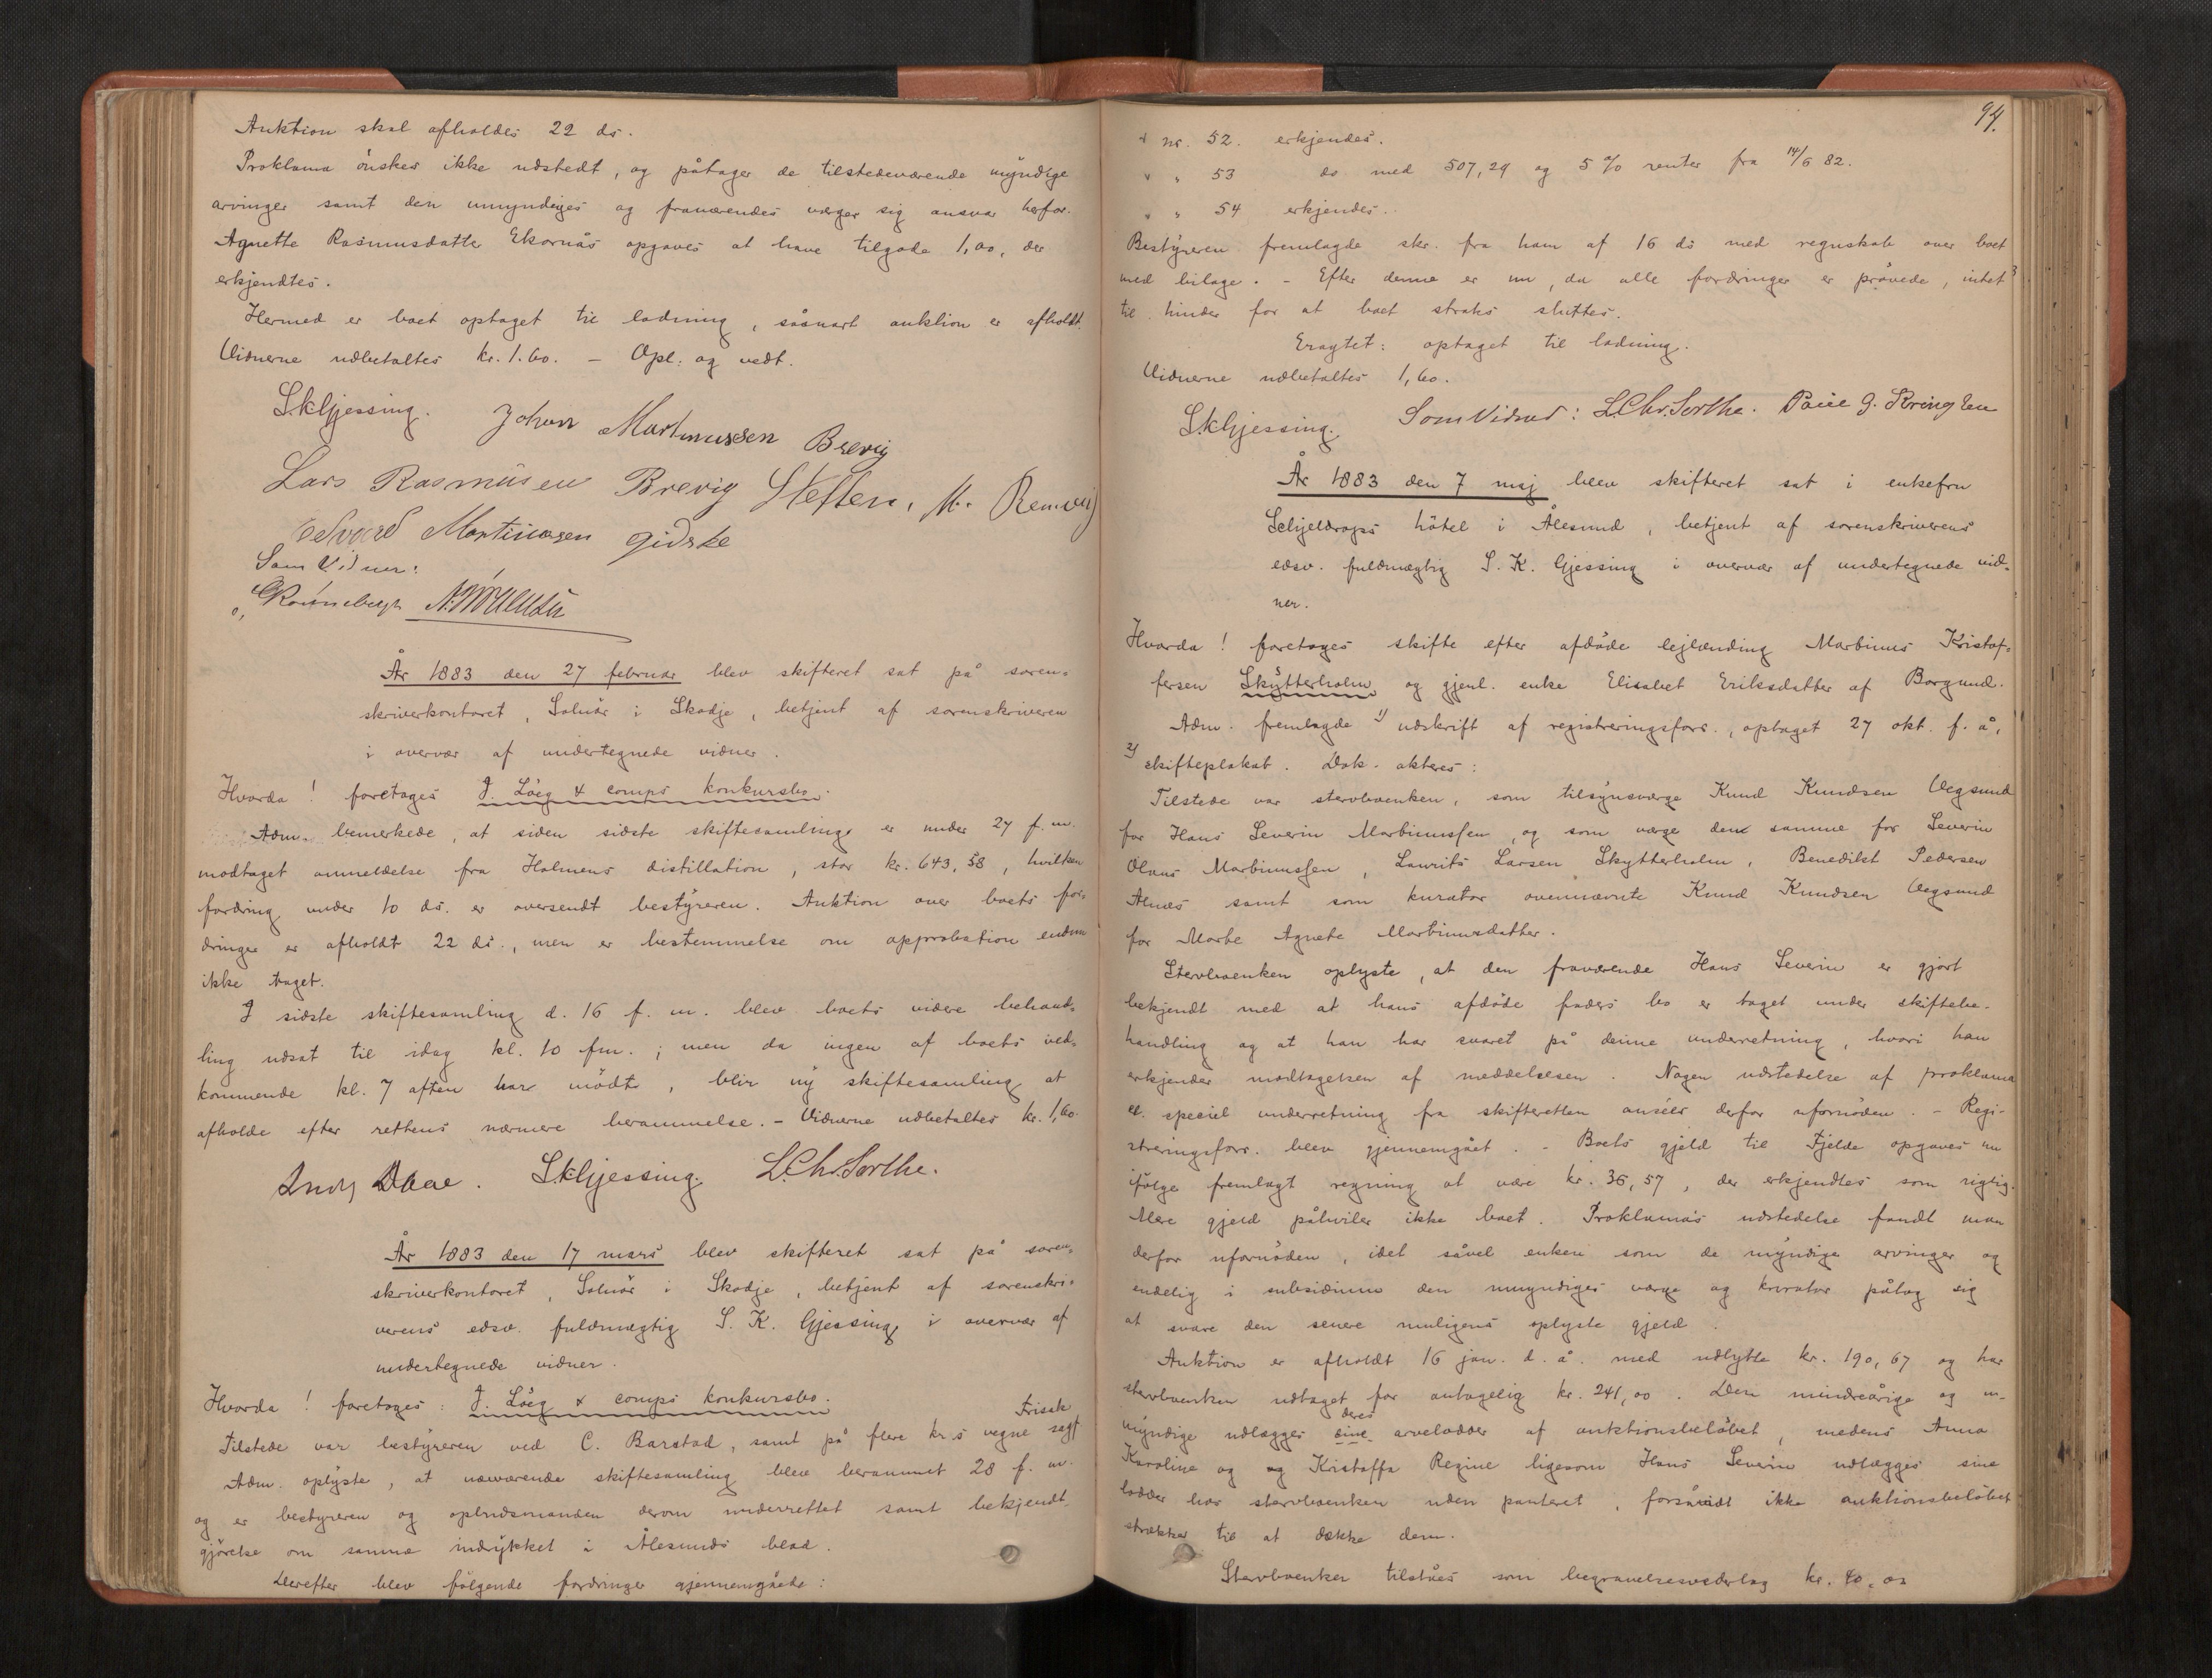 Auktion skal afholdes 22 ds.
Proklama ønskes ikke udstedt, og påtager de tilstedeværende myndige
arvinger samt den umyndiges og fraværendes værger sig ansvar herfor.
Agnette Rasmusdatter Ekornås opgaves at have tilgode 1,00, der
erkjendtes.
Hermed er boet optaget til lodning, såsnart auktion er afholdt.
Vidnerne udbetaltes kr. 1.60. – Opl. og vedt.
S.K.Gjessing. Johan Martinussen Brevig
Lars Rasmusen Brevig Steffen. M. Remvig
Edvard Martinusen Gidske
Som Vidner:
Rønneberg
År 1883 den 27 februar blev skifteret sat på soren-
skriverkontoret, Solnør i Skodje, betjent af sorenskriveren
i overvær af undertegnede vidner.
Hvorda! foretoges J. Löeg & comps konkursbo.
Adm. bemerkede, at siden sidste skiftesamling er under 27 f.m.
modtaget anmeldelse fra Holmens distillation, stor kr. 643,58, hvilken
fordring under 10 ds. er oversendt bestyreren. Auktion over boets for-
dringer er afholdt 22 ds., men er bestemmelse om approbation endnu
ikke taget.
I sidste skiftesamling d. 16 f.m. blev boets videre behand-
ling udsat til idag kl. 10 fm.; men da ingen af boets ved-
kommende kl. 7 aften har mødt, blir ny skiftesamling at
afholde efter rettens nærmere berammelse. – Vidnerne udbetaltes kr. 1,60.
Daae. S.K.Gjessing. L.Chr.Sorthe.
År 1883 den 17 mars blev skifteret sat på soren-
skriverkontoret, Solnør i Skodje, betjent af sorenskri-
verens edsv. fuldmægtig S. K. Gjessing i overvær af
undertegnede vidner.
Hvorda! foretoges: J. Löeg & comps konkursbo.
Frisak
Tilstede var bestyreren ved C. Barstad, samt på flere kr.s vegne sagf
Adm. oplyste, at nærværende skiftesamling blev berammet 28 f.m.
og er bestyreren og opbudsmanden derom underrettet samt bekjendt-
gjørelse om samme indrykket i Ålesunds blad.
Derefter blev følgende fordringer gjennemgåede:
94.
" nr. 52. erkjendes.
" " 53 do med 507,29 og 5 % renter fra 14/6 82.
" " 54 erkjendes.
Bestyreren fremlagde skr. fra ham af 16 ds med regnskab over boet
med bilage. – Efter denne er nu, da alle fordringer er prøvede, intet
til hinder for at boet straks sluttes.
Eragtet: optaget til lodning.
Vidnerne udbetaltes 1,60.
S.K.Gjessing. Som Vidner: L.Chr.Sorthe. Paul G. Kringlen
År 1883 den 7 maj blev skifteret sat i enkefru
Schjeldrops hôtel i Ålesund, betjent af sorenskriverens
edsv. fuldmægtig S. K. Gjessing i overvær af undertegnede vid-
ner.
Hvorda! foretoges skifte efter afdøde lejlænding Martinus Kristof-
fersen Skytterholm og gjenl. enke Elisabet Eriksdatter af Borgund.
Adm. fremlagde 1) udskrift af registreringsforr., optaget 27 okt. f. å.,
2) skifteplakat. Dok. akteres:
Tilstede var stervboenken, som tilsynsværge Knud Knudsen Vegsund
for Hans Severin Martinussen, og som værge den samme for Severin
Olaus Martinussen, Laurits Larsen Skytterholm, Benedikt Pedersen
Alnæs samt som kurator ovennævnte Knud Knudsen Vegsund
for Marte Agnete Martinusdatter.
Stervboenken oplyste, at den fraværende Hans Severin er gjort
bekjendt med at hans afdøde faders bo er taget under skiftebe-
handling og at han har svaret på denne underretning, hvori han
erkjender modtagelsen af meddelelsen. Nogen udstedelse af proklama
el. speciel underretning fra skifteretten anséés derfor ufornøden. – Regi-
streringsforr. blev gjennemgået. – Boets gjeld til Fjelde opgaves nu
ifølge fremlagt regning at være kr. 36,57, der erkjendtes som rigtig.
Mere gjeld påhviler ikke boet. Proklamas udstedelse fandt man
derfor ufornøden, idet såvel enken som de myndige arvinger og
endelig i subsidium den umyndiges værge og kurator påtog sig
at svare den senere muligens oplyste gjeld.
Auktion er afholdt 16 jan. d. å. med udbytte kr. 190,67 og har
stervboenken udtaget for antagelig kr. 241,00. Den mindreårige og u-
myndige udlægges sine deres arvelodder af auktionsbeløbet, medens Anna
Karoline og og Kristoffa Regine ligesom Hans Severin udlægges sine
lodder hos stervboenken uden panteret, forsåvidt ikke auktionsbeløbet
strækker til at dække dem.
Stervboenken tilståes som begravelsesvederlag kr. 40,00